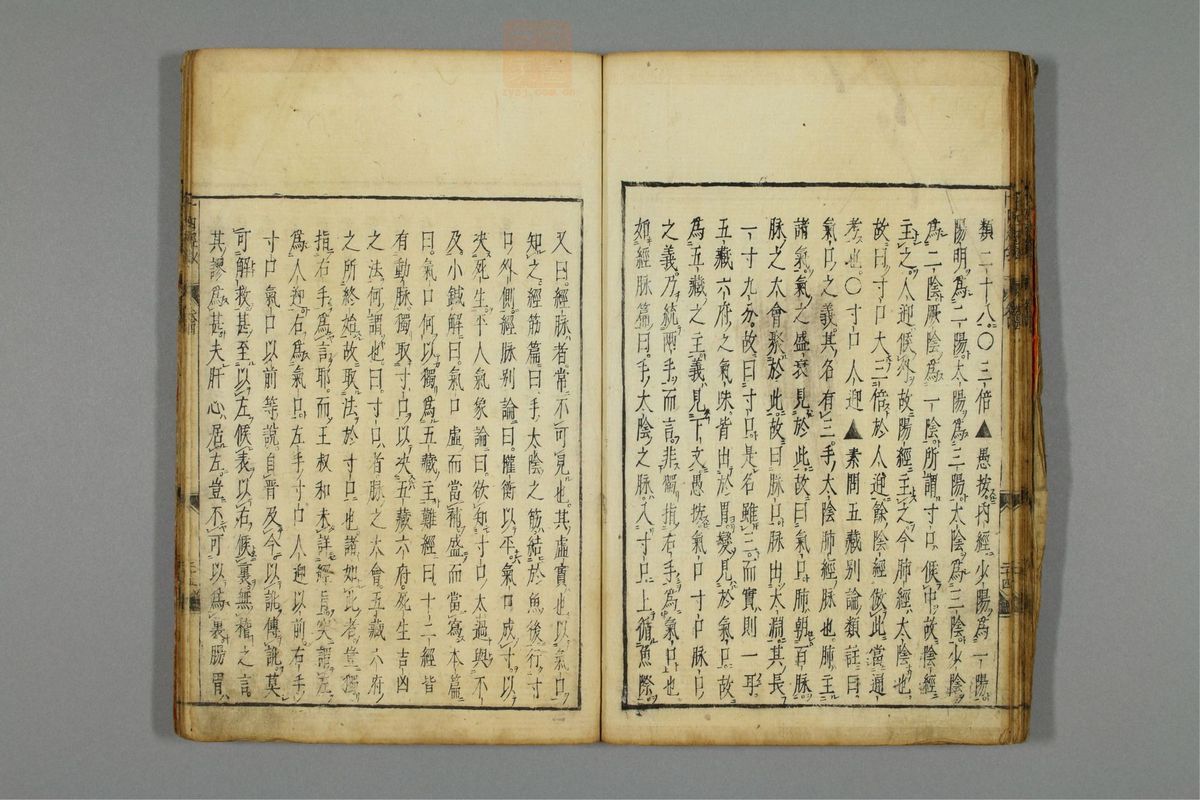 類二十八〇三倍▲愚按內經少陽爲一陽
陽明爲二陽太陽爲三陽太陰爲三陰少陰
爲二陰厥陰爲一陰所謂寸口候中故陰經
主之人迎候外故陽經主之今肺經太陰也
故曰寸口大三倍於人迎餘陰經倣此當通
考也〇寸口人迎▲素問五藏别論類註曰
氣口之義其名有三手太陰肺經脉也肺主
諸氣氣之盛衰見於此故曰氣口肺朝百脉
脉之大會聚於此故曰脉口脉出太淵其長
一寸九分故曰寸口是名雖三而實則一耳
五藏六府之氣味皆出於胃變見於氣口故
爲五藏之主義見下文愚按氣口寸口脉口
之義乃統兩手而言非獨指右手爲氣口也
如經脉篇曰手太陰之脉入寸口上循魚際
又曰經脉者常不可見也其虛實也以氣口
知之經筋篇曰手太陰之筋結於魚後行寸
口外側經脉别論曰權衡以平氣口成寸以
决死生平人氣象論曰欲知寸口太過與不
及小鍼解曰氣口虛而當補盛而當寫本篇
曰氣口何以獨爲五藏主難經曰十二經皆
有動脉獨取寸口以决五藏六府死生吉凶
之法何謂也曰寸口者脉之大會五藏六府
之所終始故取法於寸口也諸如此者豈獨
指右手爲言耶而王叔和未詳經旨突謂左
爲人迎右爲氣口左手寸口人迎以前右手
寸口氣口以前等說自晋及今以訛傳訛莫
可解救甚至以左候表以右候裏無稽之言
其謬爲甚夫肝心居左豈不可以爲裏腸胃